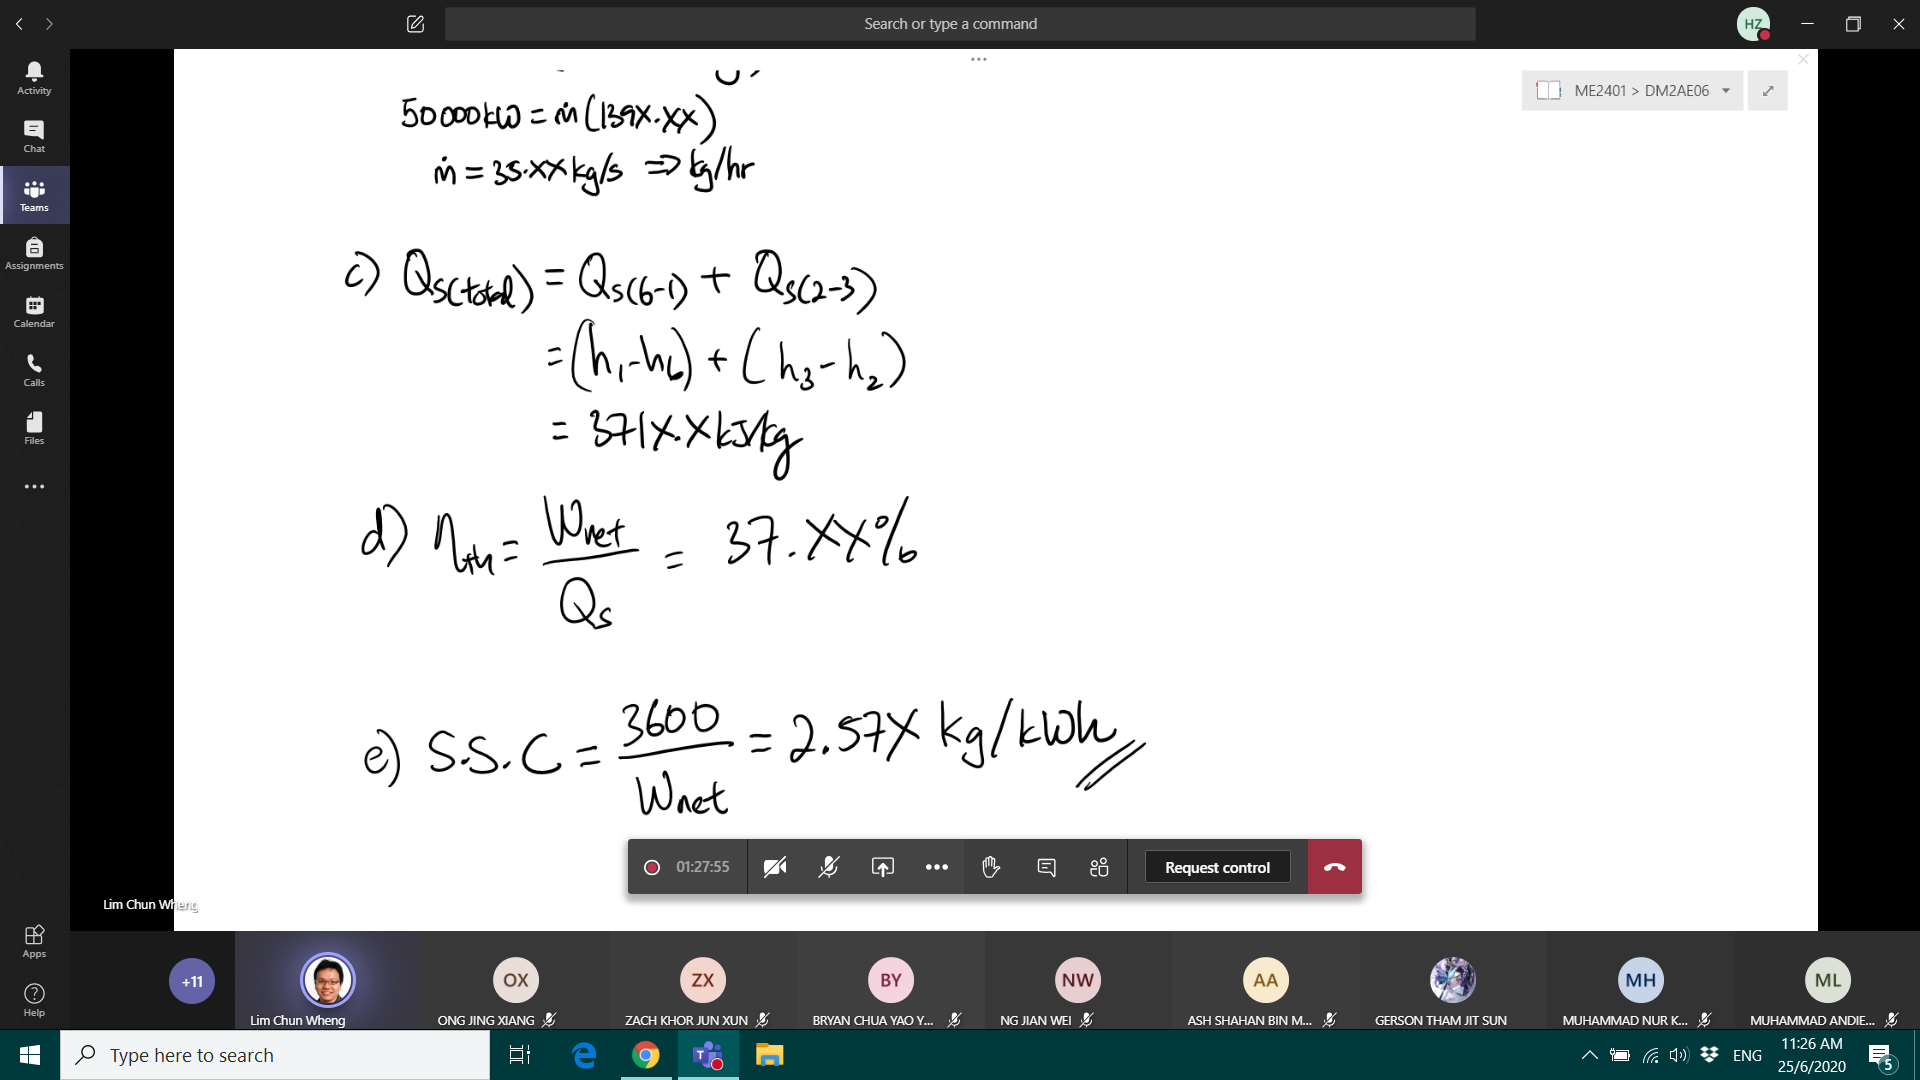 Search or type a command
HZ
Activity
Chat
Teams
Assignments
Calendar
Calls
Files
Apps
Help
ME2401 > DM2AE06
50000kW = ṁ(139X.XX)
ṁ = 35.XX kg/s ⇒ kg/hr
c) Qs(total) = Qs(6-1) + Qs(2-3)
= (h₁-h₆) + (h₃-h₂)
= 371X.X kJ/kg
d) ηth = Wnet / Qs = 37.XX%
e) S.S.C = 3600 / Wnet = 2.57X kg/kWh
01:27:55
Request control
Lim Chun Wheng
+11
OX
ZX
BY
NW
AA
MH
ML
Lim Chun Wheng
ONG JING XIANG
ZACH KHOR JUN XUN
BRYAN CHUA YAO Y...
NG JIAN WEI
ASH SHAHAN BIN M...
GERSON THAM JIT SUN
MUHAMMAD NUR K...
MUHAMMAD ANDIE...
Type here to search
ENG
11:26 AM
25/6/2020
5